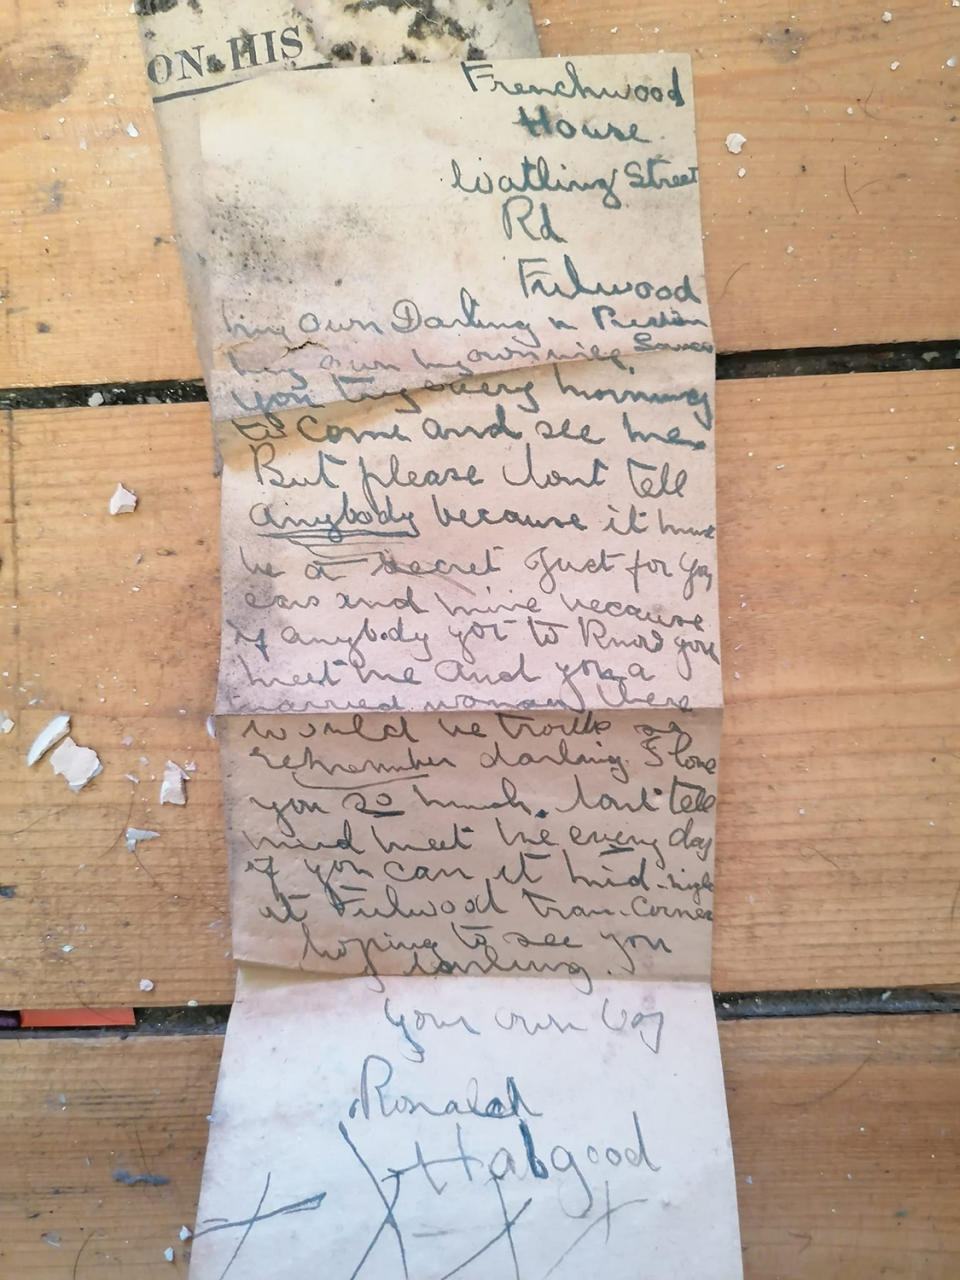 ON HIS
Frenchwood
House
Watling Street
Rd
Fulwood
my own Darling n Preston
my own my own Lancs
you try every morning
to come and see me.
But please dont tell
anybody because it must
be a secret Just for you
ears and mine because
if anybody got to know you
meet me and you a
married woman there
would be trouble so
remember darling I love
you so much. dont tell
and meet me every day
if you can at mid-nigh
at Fulwood Tram-Corner
hoping to see you
darling.
your own boy
Ronald
Habgood